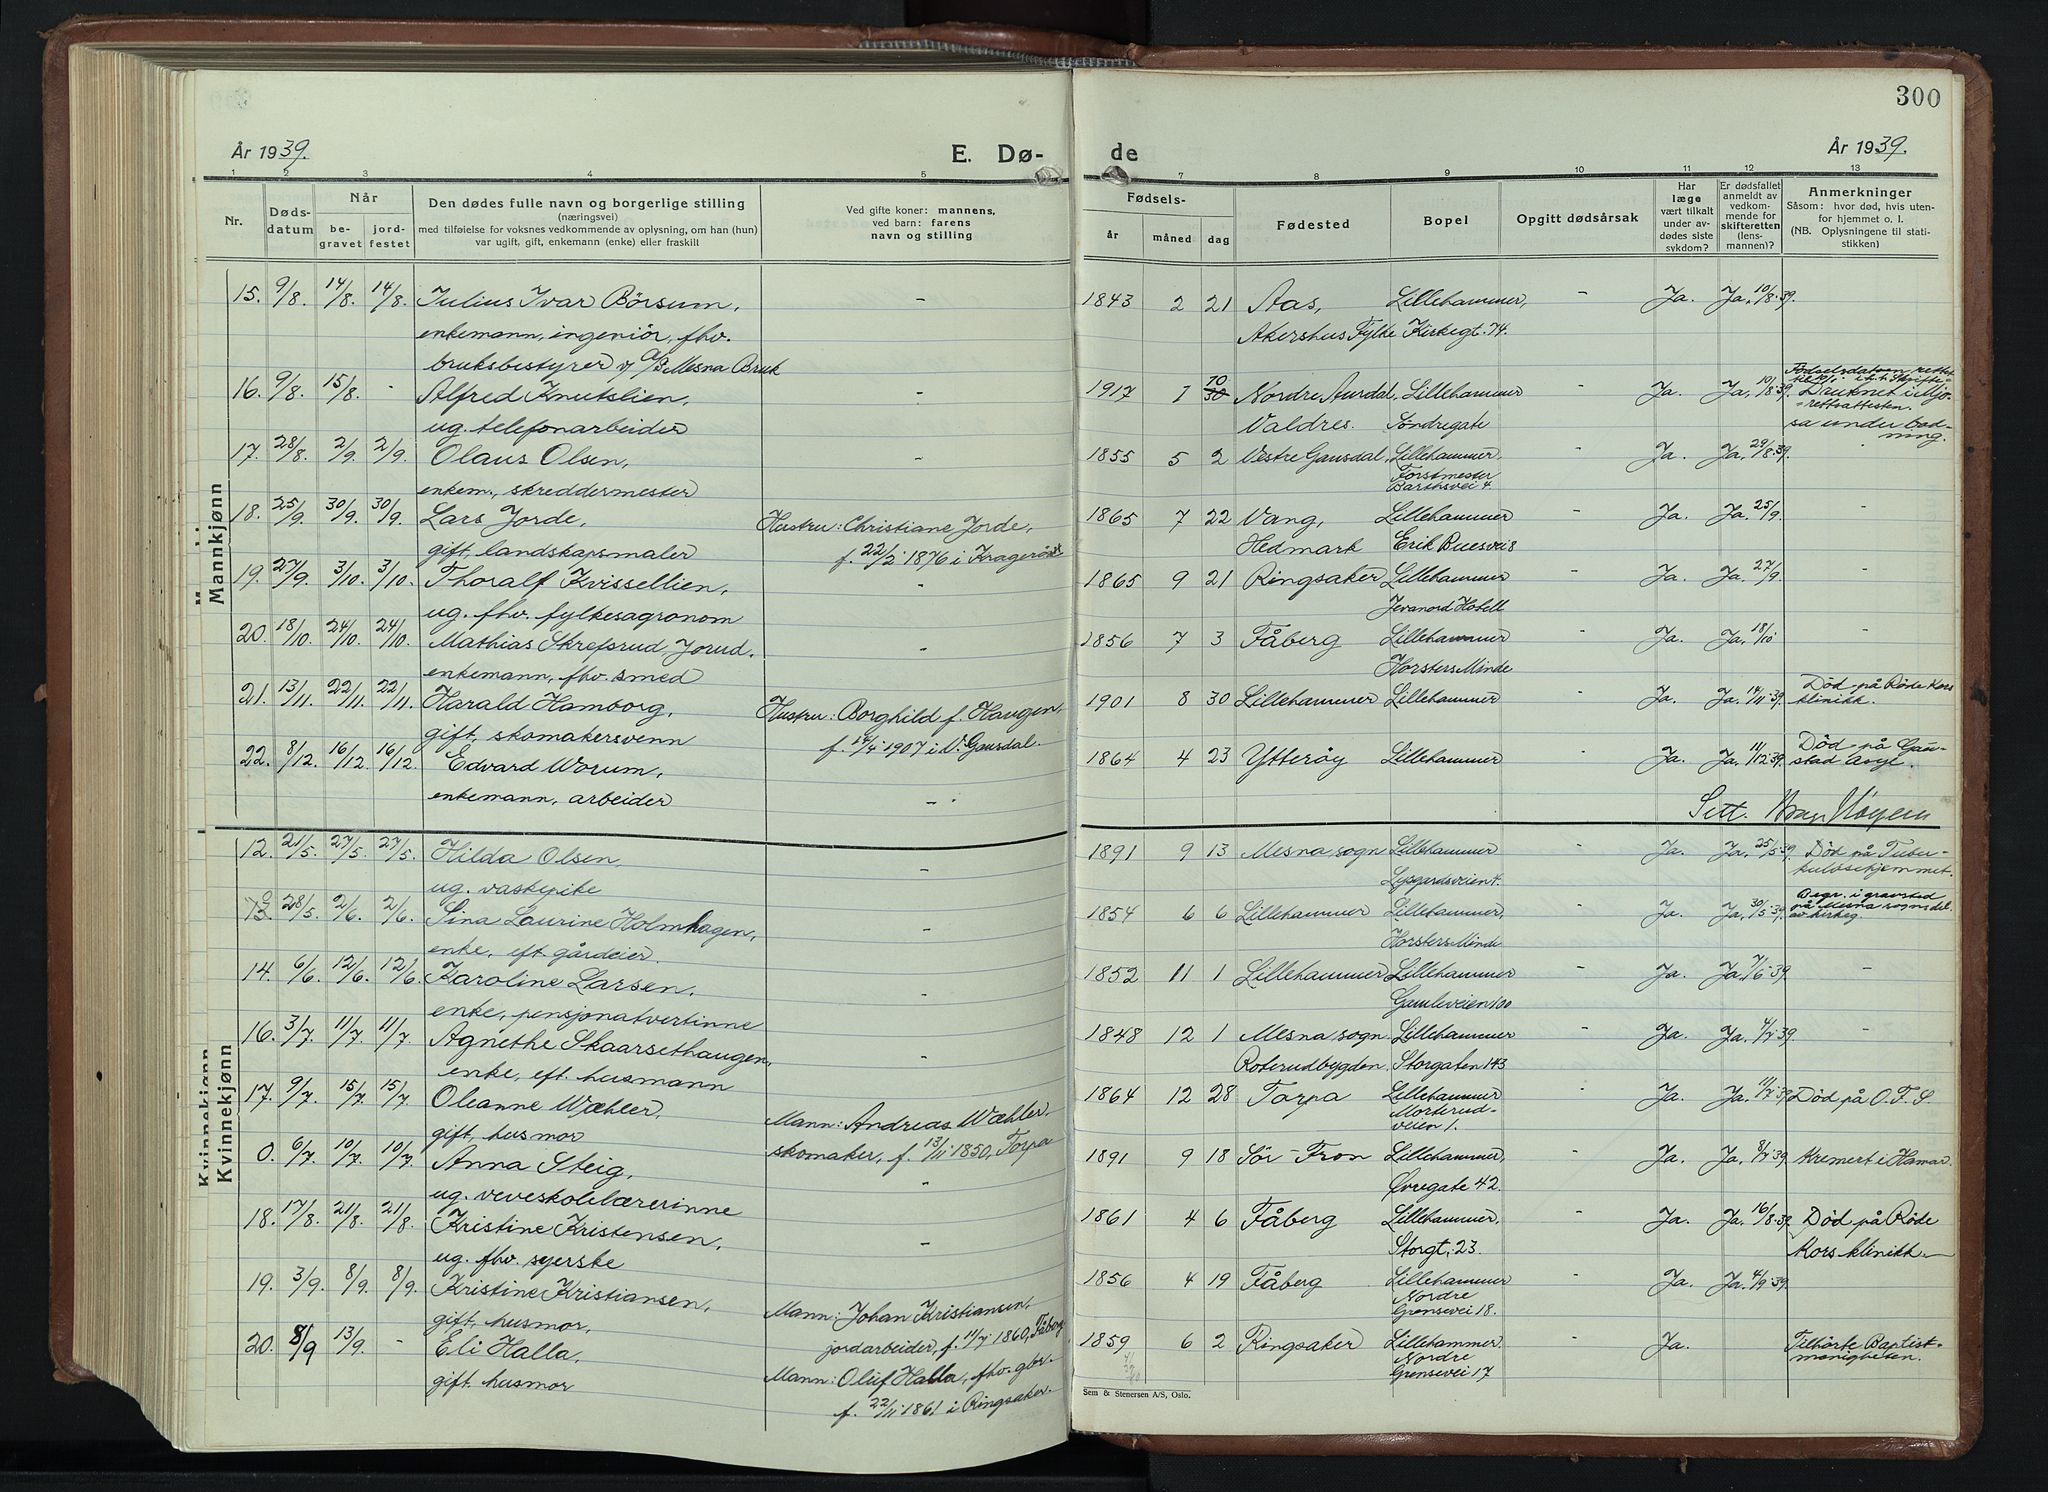 300
År 1939.
E. Dø-
de
År 1939.
1 2 3 4 5 7 8 9 10 11 12 13
Nr.
Døds-
datum
Når
be-
gravet
jord-
festet
Den dødes fulle navn og borgerlige stilling
(næringsvei)
med tilføielse for voksnes vedkommende av oplysning, om han (hun)
var ugift, gift, enkemann (enke) eller fraskill
Ved gifte koner: mannens,
ved barn: farens
navn og stilling
Fødsels-
år måned dag
Fødested
Bopel
Opgitt dødsårsak
Har
læge
vært tilkalt
under av-
dødes siste
sykdom?
Er dødsfallet
anmeldt av
vedkom-
mende for
skifteretten
(lens-
mannen)?
Anmerkninger
Såsom: hvor død, hvis uten-
for hjemmet o. l.
(NB. Oplysningene til stati-
stikken)
Mannkjønn
15. 9/8. 14/8. 14/8. Julius Ivar Børsum, - 1843 2 21 Aas, Lillehammer, - Ja. Ja, 10/8-39.
enkemann, ingeniør, fhv. Akershus Fylke Kirkegt. 74.
bruksbestyrer v/ A/S Mesna Bruk
Fødselsdatoen rettet
16. 9/8. 15/8. - Alfred Knutslien, - 1917 1 10 30 Nordre Aurdal, Lillehammer - Ja. Ja, 10/8-39. Druknet i Mjø-
rettsattesten.
ug. telefonarbeider Valdres. Søndregate sa under bad-
ning.
17. 28/8. 2/9. 2/9. Olaus Olsen, - 1855 5 2 Vestre Gausdal, Lillehammer, - Ja. Ja, 29/8-39.
Forstmester
enkem., skreddermester Barthsvei 4.
18. 25/9. 30/9. 30/9. Lars Jorde, Hustru: Christiane Jorde, 1865 7 22 Vang, Lillehammer - Ja. Ja. 25/9. -
gift, landskapsmaler f. 22/2 1876 i Kragerø Hedmark Erik Buesvei 8
19. 27/9. 3/10. 3/10. Thoralf Kvissellien, - 1865 9 21 Ringsaker Lillehammer - Ja. Ja. 27/9. -
ug. fhv. fylkesagronom Jevanord Hotell
20. 18/10. 24/10. 24/10. Mathias Skrefsrud Jorud. - 1856 7 3 Fåberg Lillehammer - Ja. Ja, 18/10 -
enkemann, fhv. smed Horsters Minde
21. 13/11. 22/11. 22/11. Harald Hamborg, Hustru: Borghild f. Haugen, 1901 8 30 Lillehammer Lillehammer - Ja. Ja, 14/11-39. Død på Røde Kors
klinikk.
gift, skomakersvenn f. 1907 i V. Gausdal.
22. 8/12. 16/12. 16/12. Edvard Worum, 1864 4 23 Ytterøy Lillehammer Ja. Ja, 11/12-39. Død på Gau-
stad Asyl.
enkemann, arbeider -
Sett.
Kvinnekjønn
12. 21/5. 27/5. 27/5. Hilda Olsen, - 1891 9 13 Mesna sogn Lillehammer - Ja. Ja, 25/5-39. Død på Tuber-
kuløsehjemmet.
ug. vaskepike Lysgardsveien 4.
13. 28/5. 2/6. 2/6. Sina Laurine Holmhagen, - 1854 6 6 Lillehammer Lillehammer, - Ja. Ja, 30/5-39. Begr. i gravsted
på Mesna sogns del
av kirkeg.
enke, eft. gårdeier. Horsters Minde
14. 6/6. 12/6. 12/6. Karoline Larsen, - 1852 11 1 Lillehammer Lillehammer - Ja. Ja, 7/6-39. -
enke, pensjonatvertinne Gamleveien 100
16. 3/7. 11/7. 11/7. Agnethe Skaarsethaugen, - 1848 12 1 Mesna sogn Lillehammer - Ja. Ja. 4/7-39. -
enke, eft. husmann Roterudbygden. Storgaten 143
17. 9/7. 15/7. 15/7. Oleanne Wæhler, Mann: Andreas Wæhler, 1864 12 28 Torpa Lillehammer - Ja. Ja. 11/7-39 Død på O. F. S.
Morterud-
veien 1.
gift, husmor skomaker, f. 13/11-1850, Torpa
0. 6/7. 10/7. 10/7. Anna Steig, - 1891 9 18 Sør-Fron Lillehammer, - Ja. Ja, 8/7-39. Kremert i Hamar.
ug. veveskolelærerinne Øvregate 42.
18. 17/8. 21/8. 21/8. Kristine Kristensen, - 1861 4 6 Fåberg Lillehammer, - Ja. Ja. 16/8-39 Død på Røde
ug. fhv. syerske Storgt. 23. Kors klinikk.
19. 3/9. 8/9. 8/9. Kristine Kristiansen, Mann: Johan Kristiansen, 1856 4 19 Fåberg Lillehammer - Ja. Ja. 4/9-39.
Nordre
gift, husmor, jordarbeider, f. 11/7-1860, Fåberg Grensevei 18.
20. 8/9 13/9. - Eli Halla, Mann: Oluf Halla, fhv. gbr. 1859 6 2 Ringsaker Lillehammer. - Ja. Tilhørte Baptist-
menigheten.
Nordre
gift, husmor f. 22/11-1861 i Ringsaker. Grensevei 17
Sem & Stenersen A/S, Oslo.